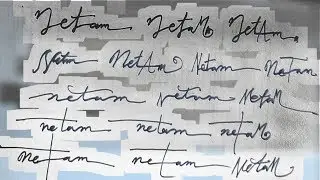 Netam Netam NetAm
Netam NetAm Netam NeTam
netam netam Netam
netam netam netam
netam netam Netam